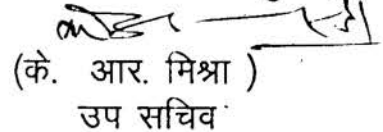 (के. आर. मिश्रा )
उप सचिव